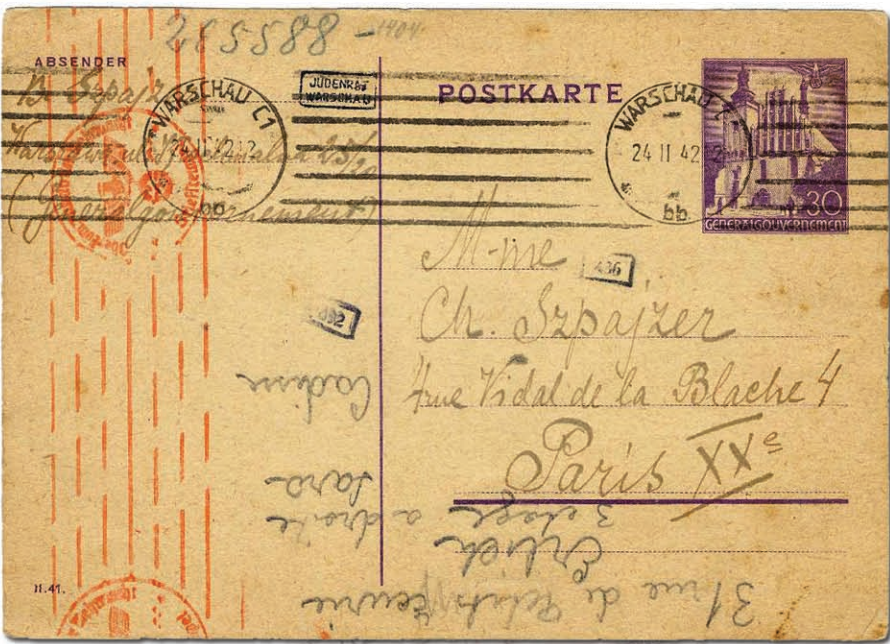 285588 - 1404
ABSENDER
B. Szpajz
Warszawa, ul.
(Generalgouvernement)
WARSCHAU C1
24 II 42 12
bb
JUDENRAT
WARSCHAU
POSTKARTE
WARSCHAU C
24 II 42 12
bb
30
GENERALGOUVERNEMENT
M-me
436
Ch. Szpajzer
4 rue Vidal de la Blache 4
Paris XXe
II.41.
31 rue de
Erlich
3 etage a droite